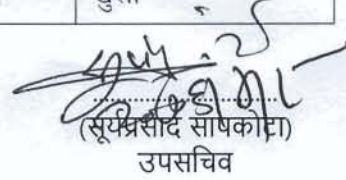 खुला
(सूर्यप्रसाद सापकोटा)
उपसचिव